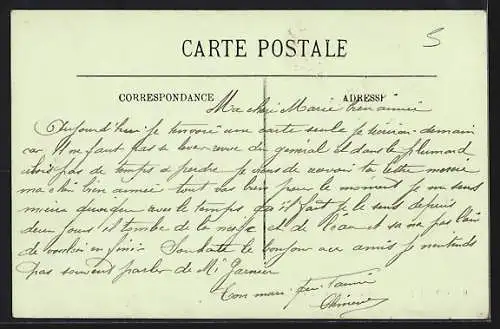 5
CARTE POSTALE
CORRESPONDANCE
ADRESSE
Ma chère Marie bien aimée
Aujourd'hui je t'envoie une carte seule je t'écrirai demain
car il ne faut pas se lever et dans le plumard
pas de temps à perdre je viens de recevoir ta lettre merci
ma bien aimée tout va bien pour le moment je me sens
mieux avec le temps qu'il fait je le sens depuis
deux jours il tombe de la neige et de l'eau et sa na pas l'air
de vouloir en finir. Souhaite le bonjour aux amis je n'entends
pas souvent parler de Mr Garnier
Ton mari qui t'aime